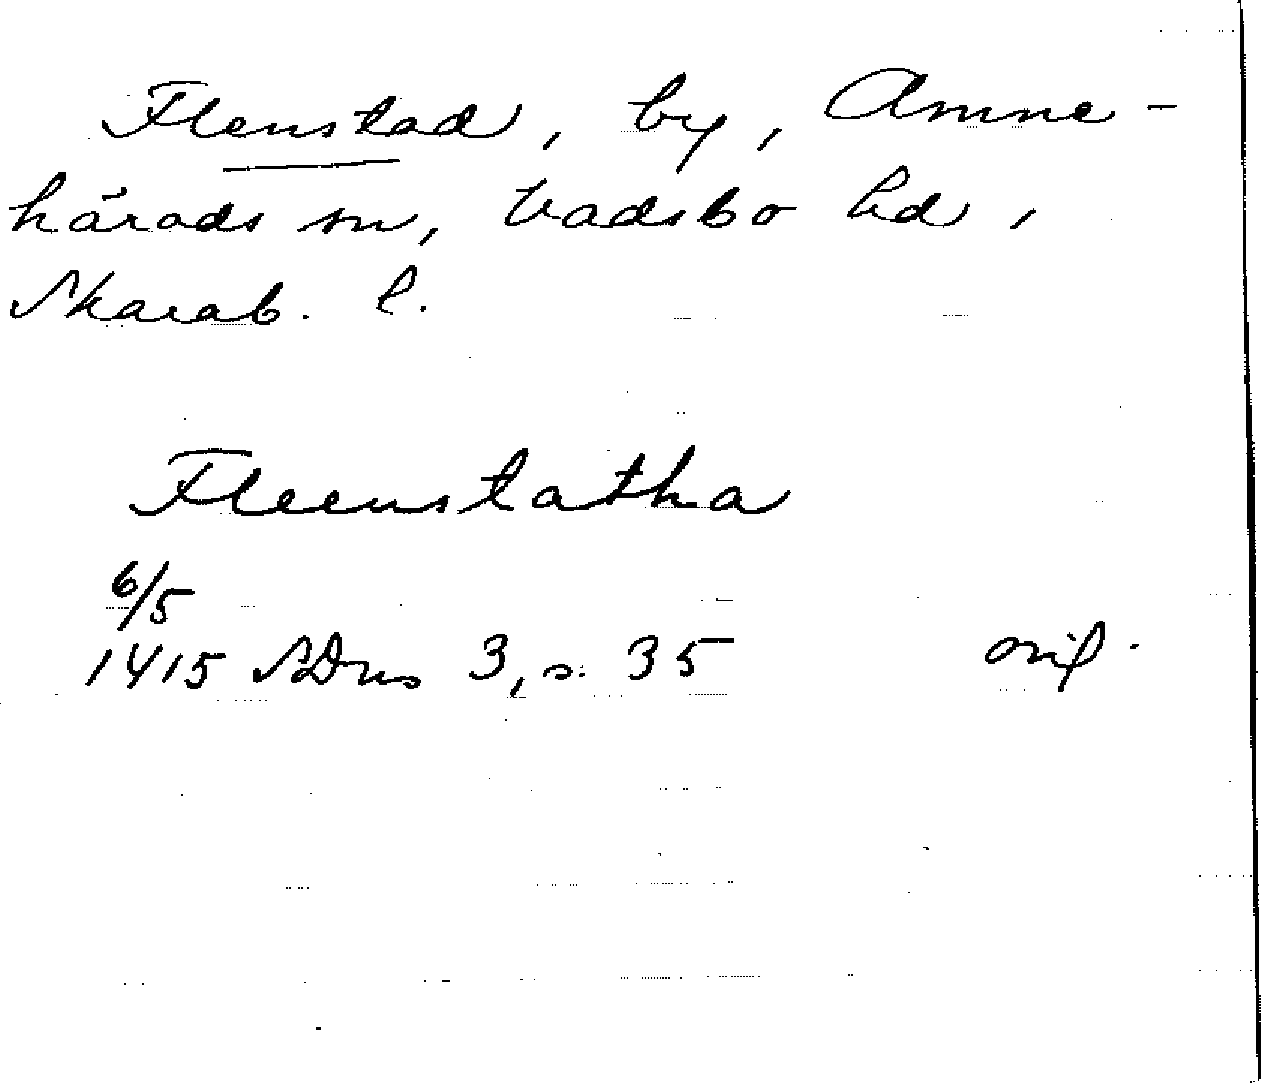 Flenstad, by, Amne-
härads sn, Vadsbo hd,
Skarab. l.
Fleenstatha
6/5
1415 SDns 3, s. 35 orig.